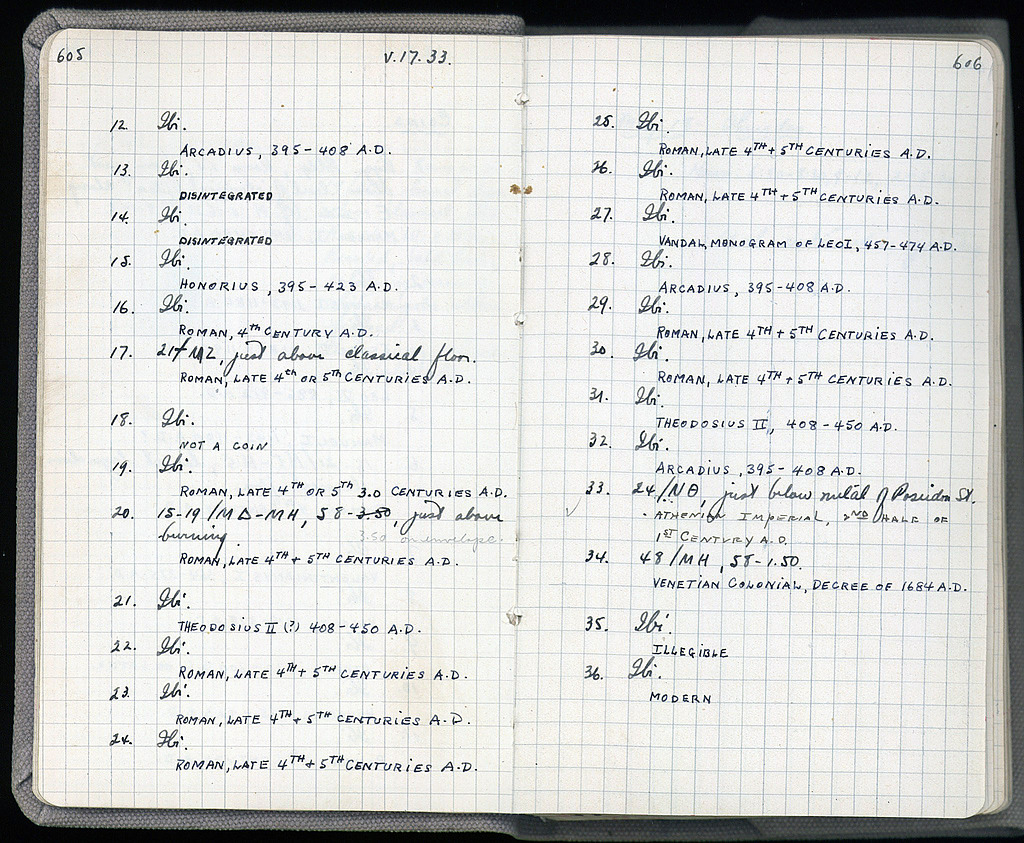 605
V.17.33.
12. Ibi.
ARCADIUS, 395-408 A.D.
13. Ibi.
DISINTEGRATED
14. Ibi.
DISINTEGRATED
15. Ibi.
HONORIUS, 395-423 A.D.
16. Ibi.
ROMAN, 4th CENTURY A.D.
17. 21/ΜΖ, just above classical floor.
ROMAN, LATE 4th OR 5th CENTURIES A.D.
18. Ibi.
NOT A COIN
19. Ibi.
ROMAN, LATE 4TH OR 5th CENTURIES A.D.
3.0
20. 15-19/ΜΔ-ΜΗ, 58-3.50, just above
burning.
3.50 on envelope.
ROMAN, LATE 4TH + 5TH CENTURIES A.D.
21. Ibi.
THEODOSIUS II (?) 408-450 A.D.
22. Ibi.
ROMAN, LATE 4TH + 5TH CENTURIES A.D.
23. Ibi.
ROMAN, LATE 4TH + 5TH CENTURIES A.D.
24. Ibi.
ROMAN, LATE 4TH + 5TH CENTURIES A.D.
606
25. Ibi.
ROMAN, LATE 4TH + 5TH CENTURIES A.D.
26. Ibi.
ROMAN, LATE 4TH + 5TH CENTURIES A.D.
27. Ibi.
VANDAL, MONOGRAM OF LEO I, 457-474 A.D.
28. Ibi.
ARCADIUS, 395-408 A.D.
29. Ibi.
ROMAN, LATE 4TH + 5TH CENTURIES A.D.
30. Ibi.
ROMAN, LATE 4TH + 5TH CENTURIES A.D.
31. Ibi.
THEODOSIUS II, 408-450 A.D.
32. Ibi.
ARCADIUS, 395-408 A.D.
33. 24/ΝΘ, just below metal of Poseidon St.
ATHENIAN IMPERIAL, 2ND HALF OF
1ST CENTURY A.D.
34. 48/ΜΗ, 58-1.50.
VENETIAN COLONIAL, DECREE OF 1684 A.D.
35. Ibi.
ILLEGIBLE
36. Ibi.
MODERN